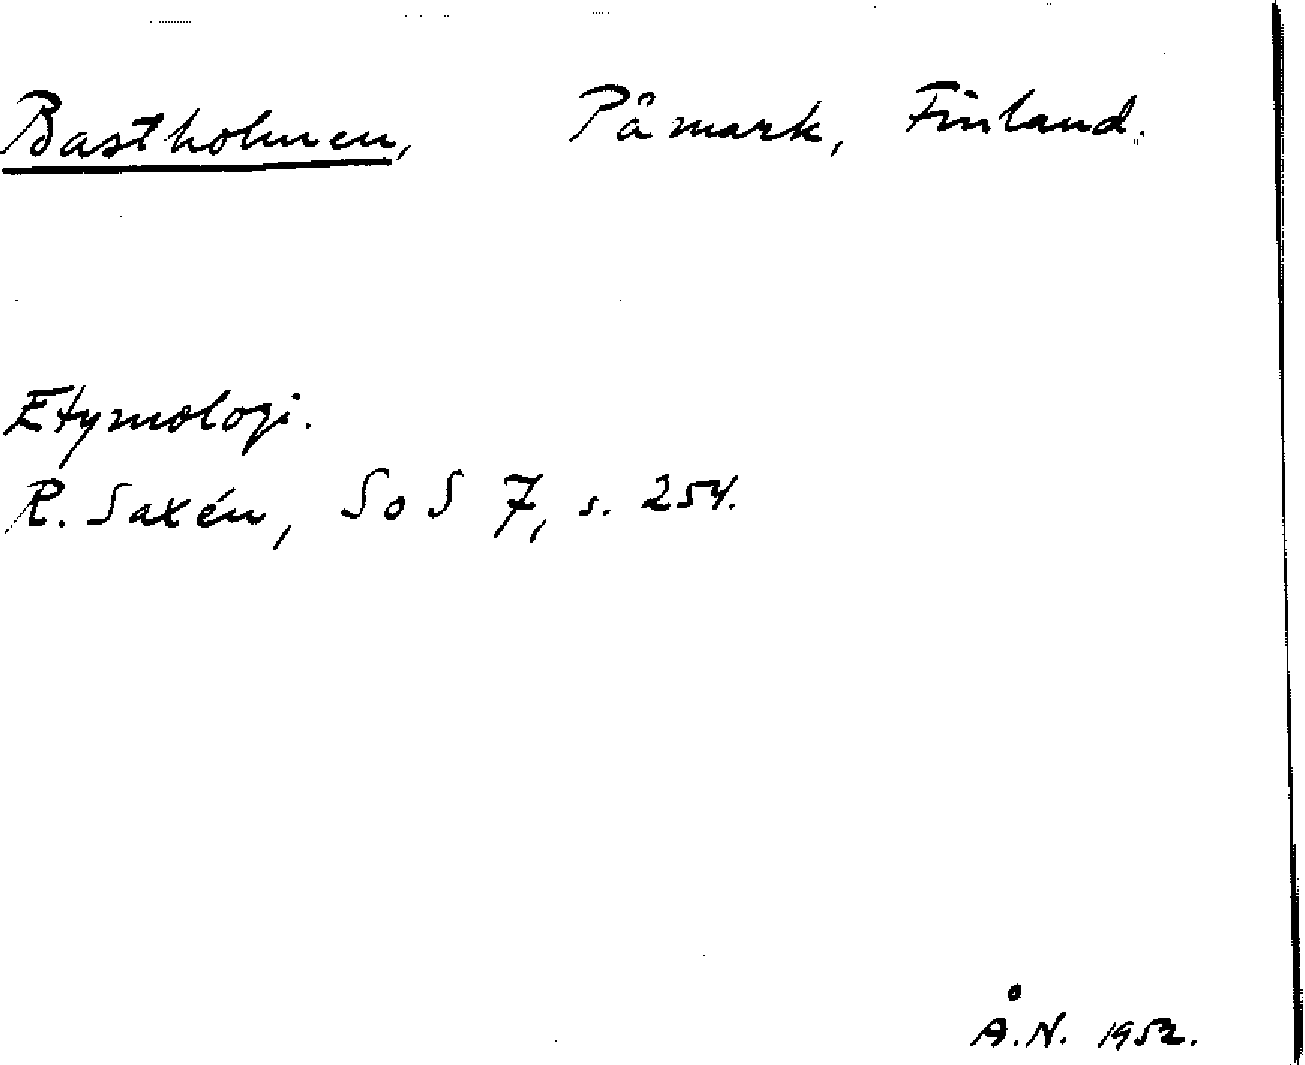 Bastholmen, Påmark, Finland.
Etymologi.
R. Saxén, SoS 7, s. 254.
Å.N. 1952.